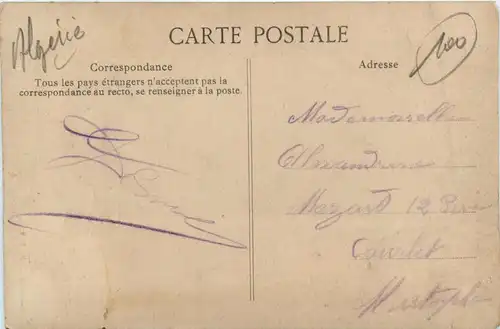 Algérie
CARTE POSTALE
100
Correspondance
Tous les pays étrangers n'acceptent pas la
correspondance au recto, se renseigner à la poste.
Adresse
Mademoiselle
Alexandrine
Mozart 12
Mustapha